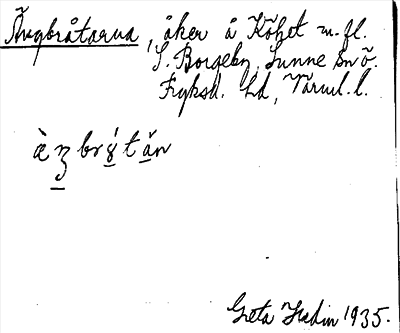 Ängbråtarna, åker å Köhet m.fl.
S. Borgeby, Sunne sn ö.
Fryksd. hd, Värml. l.
Greta Hedin 1935.